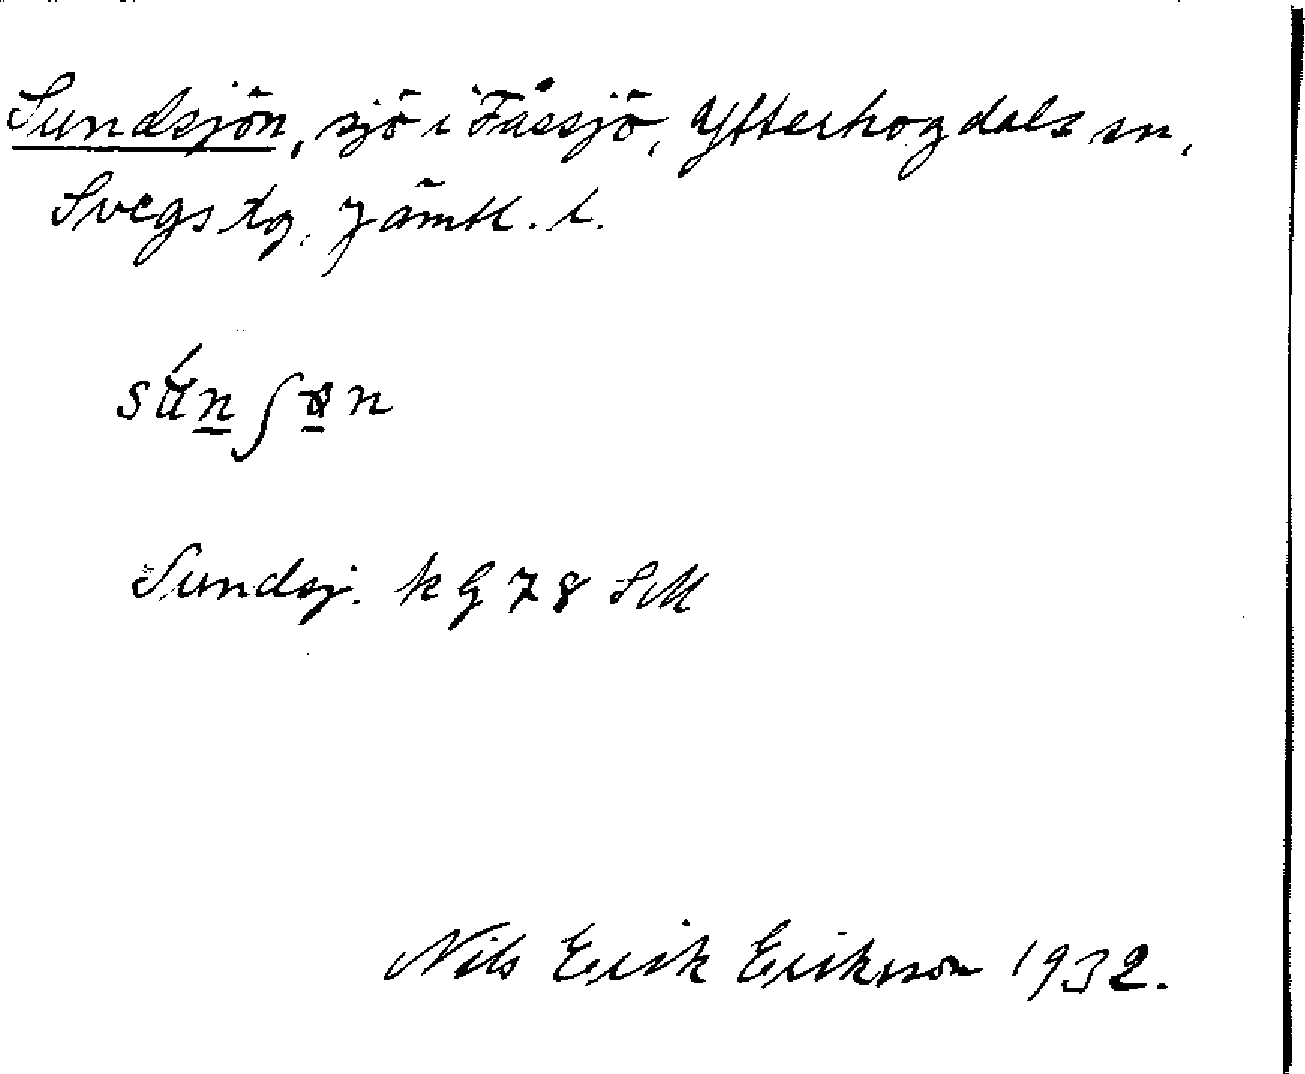 Sundsjön, sjö i Fåssjö, Ytterhogdals sn,
Svegs tg, Jämtl. l.
Sundsj. k G 78 SM
Nils Erik Eriksson 1932.